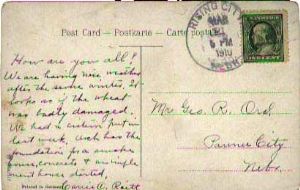 Post Card - Postkarte - Carte postale
RISING CITY
MAR
5 PM
1910
NEBR.
How are you all?
We are having nice weather
after the severe winter. It
looks as if the wheat
was badly damaged.
We had a
last week. has the
foundation for a
house, concrete & an imple-
ment house started.
Carrie A.
Printed in Germany
Mr Geo. R. Ord
Pawnee City
Nebr.